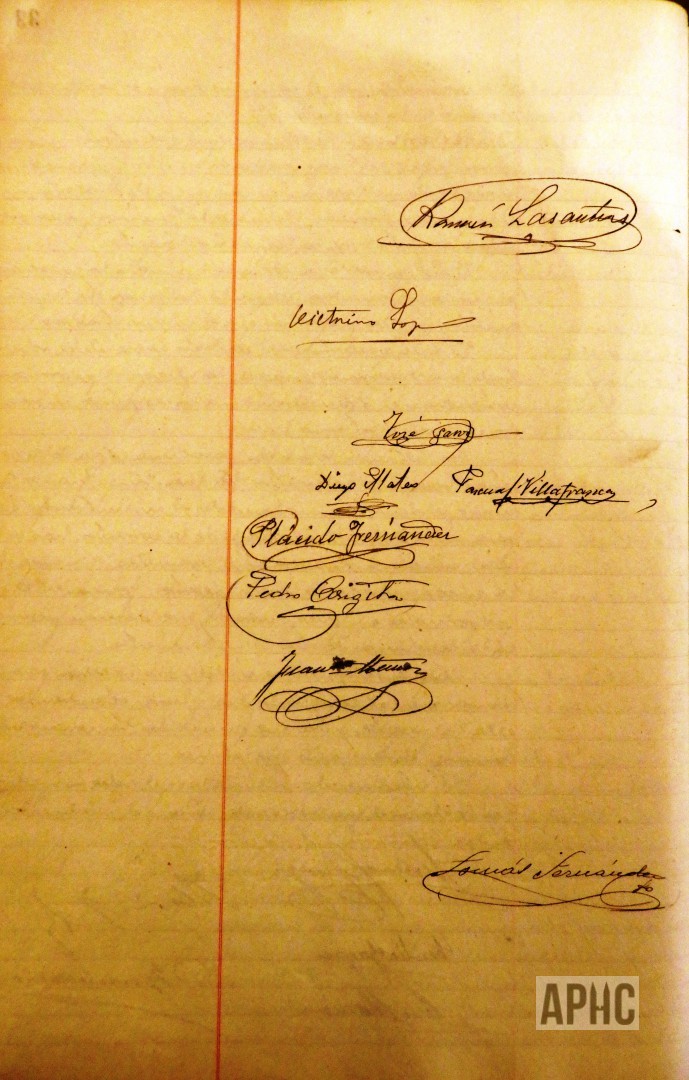 Ramón Lasantas
Victorino Lop
José Sanz
Diego Mateo Pascual Villafranca
Plácido Fernández
Pedro
Juan
Tomás Fernández
APHC